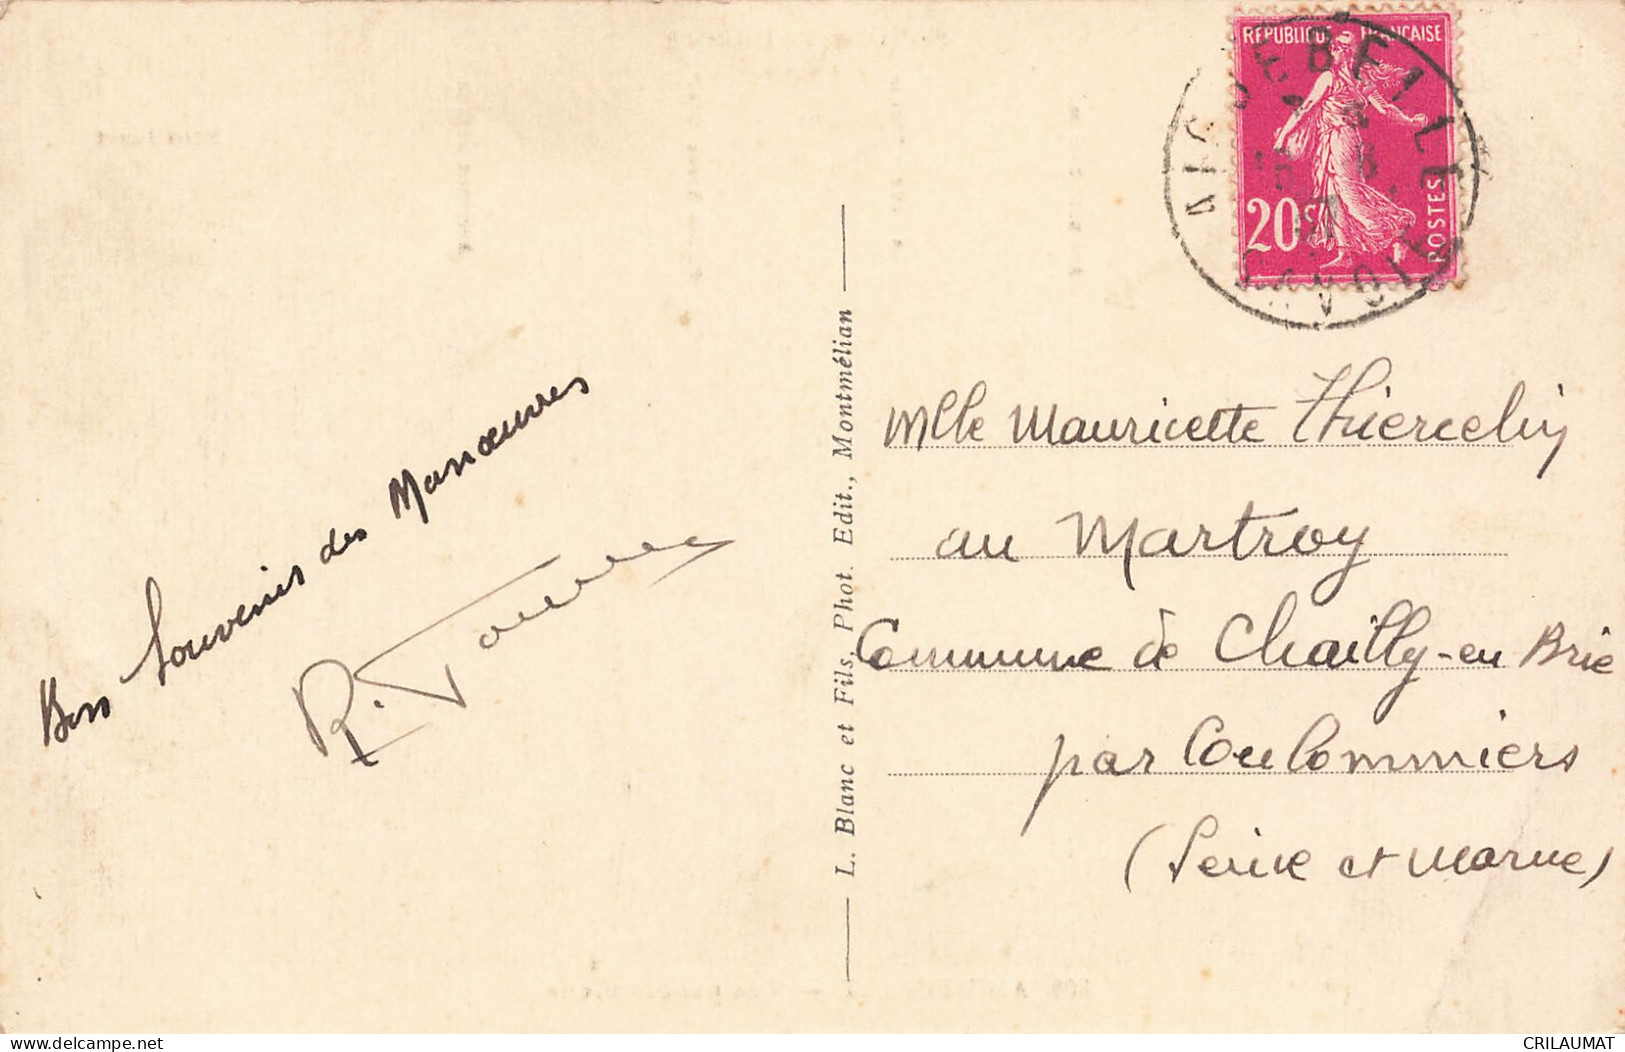 RÉPUBLIQUE FRANÇAISE
20c
POSTES
AIGUEBELLE
SAVOIE
Bons Souvenirs des Manœuvres
L. Blanc et Fils, Phot. Edit., Montmélian
Mlle Mauricette Thiercelin
au Martroy
Commune de Chailly-en Brie
par Coulommiers
(Seine et Marne)
delcampe.net
CRILAUMAT